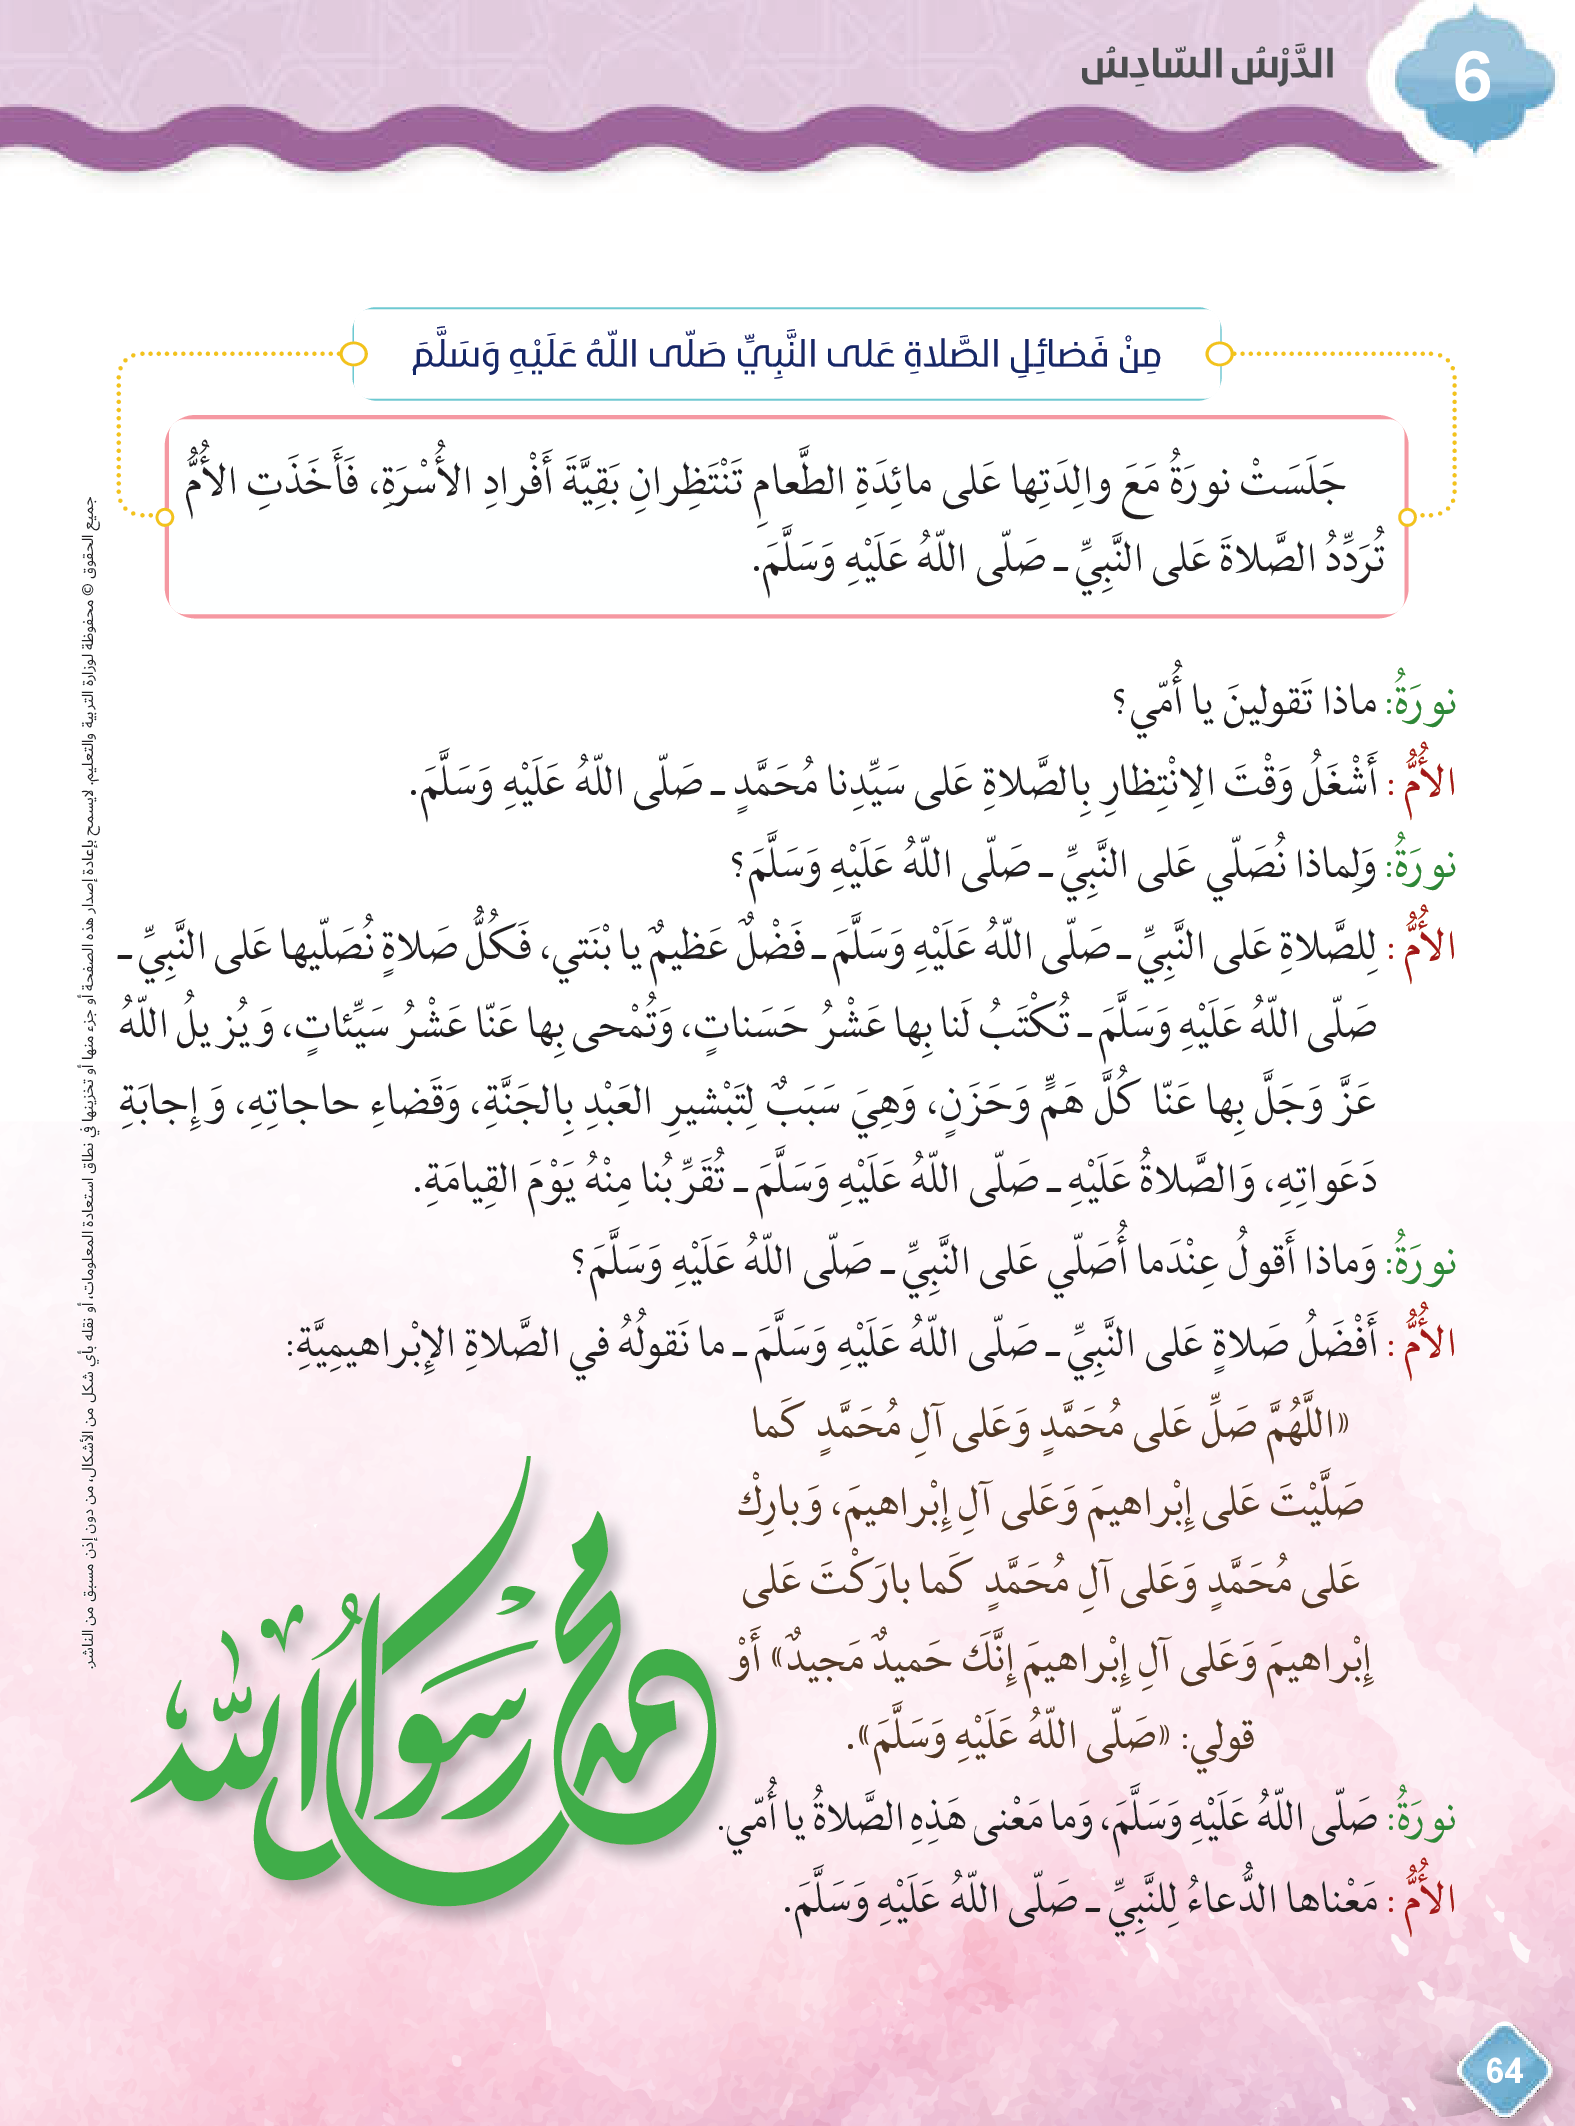 6
الدَّرْسُ السّادِسُ
مِنْ فَضائِلِ الصَّلاةِ عَلى النَّبِيِّ صَلّى اللّهُ عَلَيْهِ وَسَلَّمَ
جَلَسَتْ نورَةُ مَعَ والِدَتِها عَلى مائِدَةِ الطَّعامِ تَنْتَظِرانِ بَقِيَّةَ أَفْرادِ الأُسْرَةِ، فَأَخَذَتِ الأُمُّ
تُرَدِّدُ الصَّلاةَ عَلى النَّبِيِّ ـ صَلّى اللّهُ عَلَيْهِ وَسَلَّمَ.
نورَةُ: ماذا تَقولينَ يا أُمّي؟
الأُمُّ : أَشْغَلُ وَقْتَ الِانْتِظارِ بِالصَّلاةِ عَلى سَيِّدِنا مُحَمَّدٍ ـ صَلّى اللّهُ عَلَيْهِ وَسَلَّمَ.
نورَةُ: وَلِماذا نُصَلّي عَلى النَّبِيِّ ـ صَلّى اللّهُ عَلَيْهِ وَسَلَّمَ؟
الأُمُّ : لِلصَّلاةِ عَلى النَّبِيِّ ـ صَلّى اللّهُ عَلَيْهِ وَسَلَّمَ ـ فَضْلٌ عَظيمٌ يا بْنَتي، فَكُلُّ صَلاةٍ نُصَلّيها عَلى النَّبِيِّ ـ
صَلّى اللّهُ عَلَيْهِ وَسَلَّمَ ـ تُكْتَبُ لَنا بِها عَشْرُ حَسَناتٍ، وَتُمْحى بِها عَنّا عَشْرُ سَيِّئاتٍ، وَيُزيلُ اللّهُ
عَزَّ وَجَلَّ بِها عَنّا كُلَّ هَمٍّ وَحَزَنٍ، وَهِيَ سَبَبٌ لِتَبْشيرِ العَبْدِ بِالجَنَّةِ، وَقَضاءِ حاجاتِهِ، وَإِجابَةِ
دَعَواتِهِ، وَالصَّلاةُ عَلَيْهِ ـ صَلّى اللّهُ عَلَيْهِ وَسَلَّمَ ـ تُقَرِّبُنا مِنْهُ يَوْمَ القِيامَةِ.
نورَةُ: وَماذا أَقولُ عِنْدَما أُصَلّي عَلى النَّبِيِّ ـ صَلّى اللّهُ عَلَيْهِ وَسَلَّمَ؟
الأُمُّ : أَفْضَلُ صَلاةٍ عَلى النَّبِيِّ ـ صَلّى اللّهُ عَلَيْهِ وَسَلَّمَ ـ ما نَقولُهُ في الصَّلاةِ الإِبْراهيمِيَّةِ:
«اللَّهُمَّ صَلِّ عَلى مُحَمَّدٍ وَعَلى آلِ مُحَمَّدٍ كَما
صَلَّيْتَ عَلى إِبْراهيمَ وَعَلى آلِ إِبْراهيمَ، وَبارِكْ
عَلى مُحَمَّدٍ وَعَلى آلِ مُحَمَّدٍ كَما بارَكْتَ عَلى
إِبْراهيمَ وَعَلى آلِ إِبْراهيمَ إِنَّكَ حَميدٌ مَجيدٌ» أَوْ
قولي: «صَلّى اللّهُ عَلَيْهِ وَسَلَّمَ».
محمد رسول الله
نورَةُ: صَلّى اللّهُ عَلَيْهِ وَسَلَّمَ، وَما مَعْنى هَذِهِ الصَّلاةُ يا أُمّي.
الأُمُّ : مَعْناها الدُّعاءُ لِلنَّبِيِّ ـ صَلّى اللّهُ عَلَيْهِ وَسَلَّمَ.
جميع الحقوق © محفوظة لوزارة التربية والتعليم. لايسمح بإعادة إصدار هذه الصفحة أو جزء منها أو تخزينها في نطاق استعادة المعلومات، أو نقله بأي شكل من الأشكال، من دون إذن مسبق من الناشر.
64